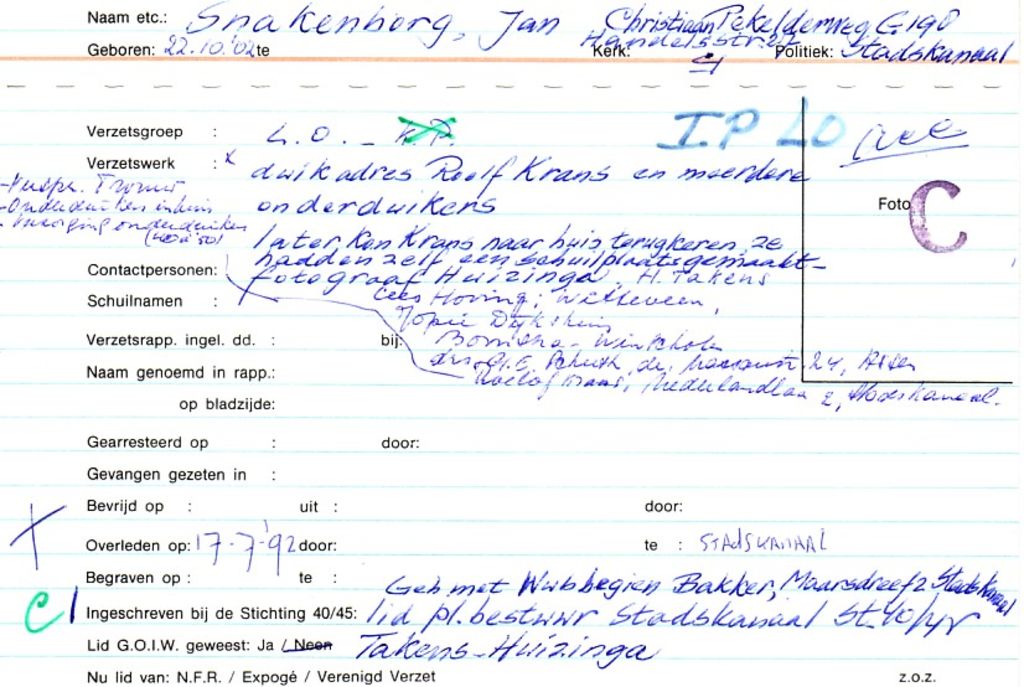 Naam etc.: Snakenborg, Jan Christiaan Pekelderweg G 198
Geboren: 22.10.'02 te Handelsstr. 22 Kerk: Politiek: Stadskanaal
Verzetsgroep : L.O. - K.P. I.P LO
Verzetswerk : x duikadres Roelf Krans en meerdere
- Trouw
onderduikers Foto C
- Onderduikers in huis
- Verzorging onderduikers
later kon Krans naar huis terugkeren. ze
hadden zelf een schuilplaats gemaakt -
Contactpersonen: fotograaf Huizinga, H. Takens
Schuilnamen : Cees Hoving; Witteveen,
Jopie Dijkshuis
Verzetsrapp. ingel. dd. : bij:
drs. G.E. 24, Assen
Naam genoemd in rapp.: Roelof Nederlandlaan 2, Stadskanaal.
op bladzijde:
Gearresteerd op : door:
Gevangen gezeten in :
Bevrijd op : uit : door:
Overleden op: 17-7-'92 door: te : STADSKANAAL
Begraven op : te : Geh met Wubbegien Bakker, Maarsdreef 2 Stadskanaal
C Ingeschreven bij de Stichting 40/45: lid pl. bestuur Stadskanaal St. 40/45
Lid G.O.I.W. geweest: Ja / Neen Takens-Huizinga
Nu lid van: N.F.R. / Expogé / Verenigd Verzet z.o.z.